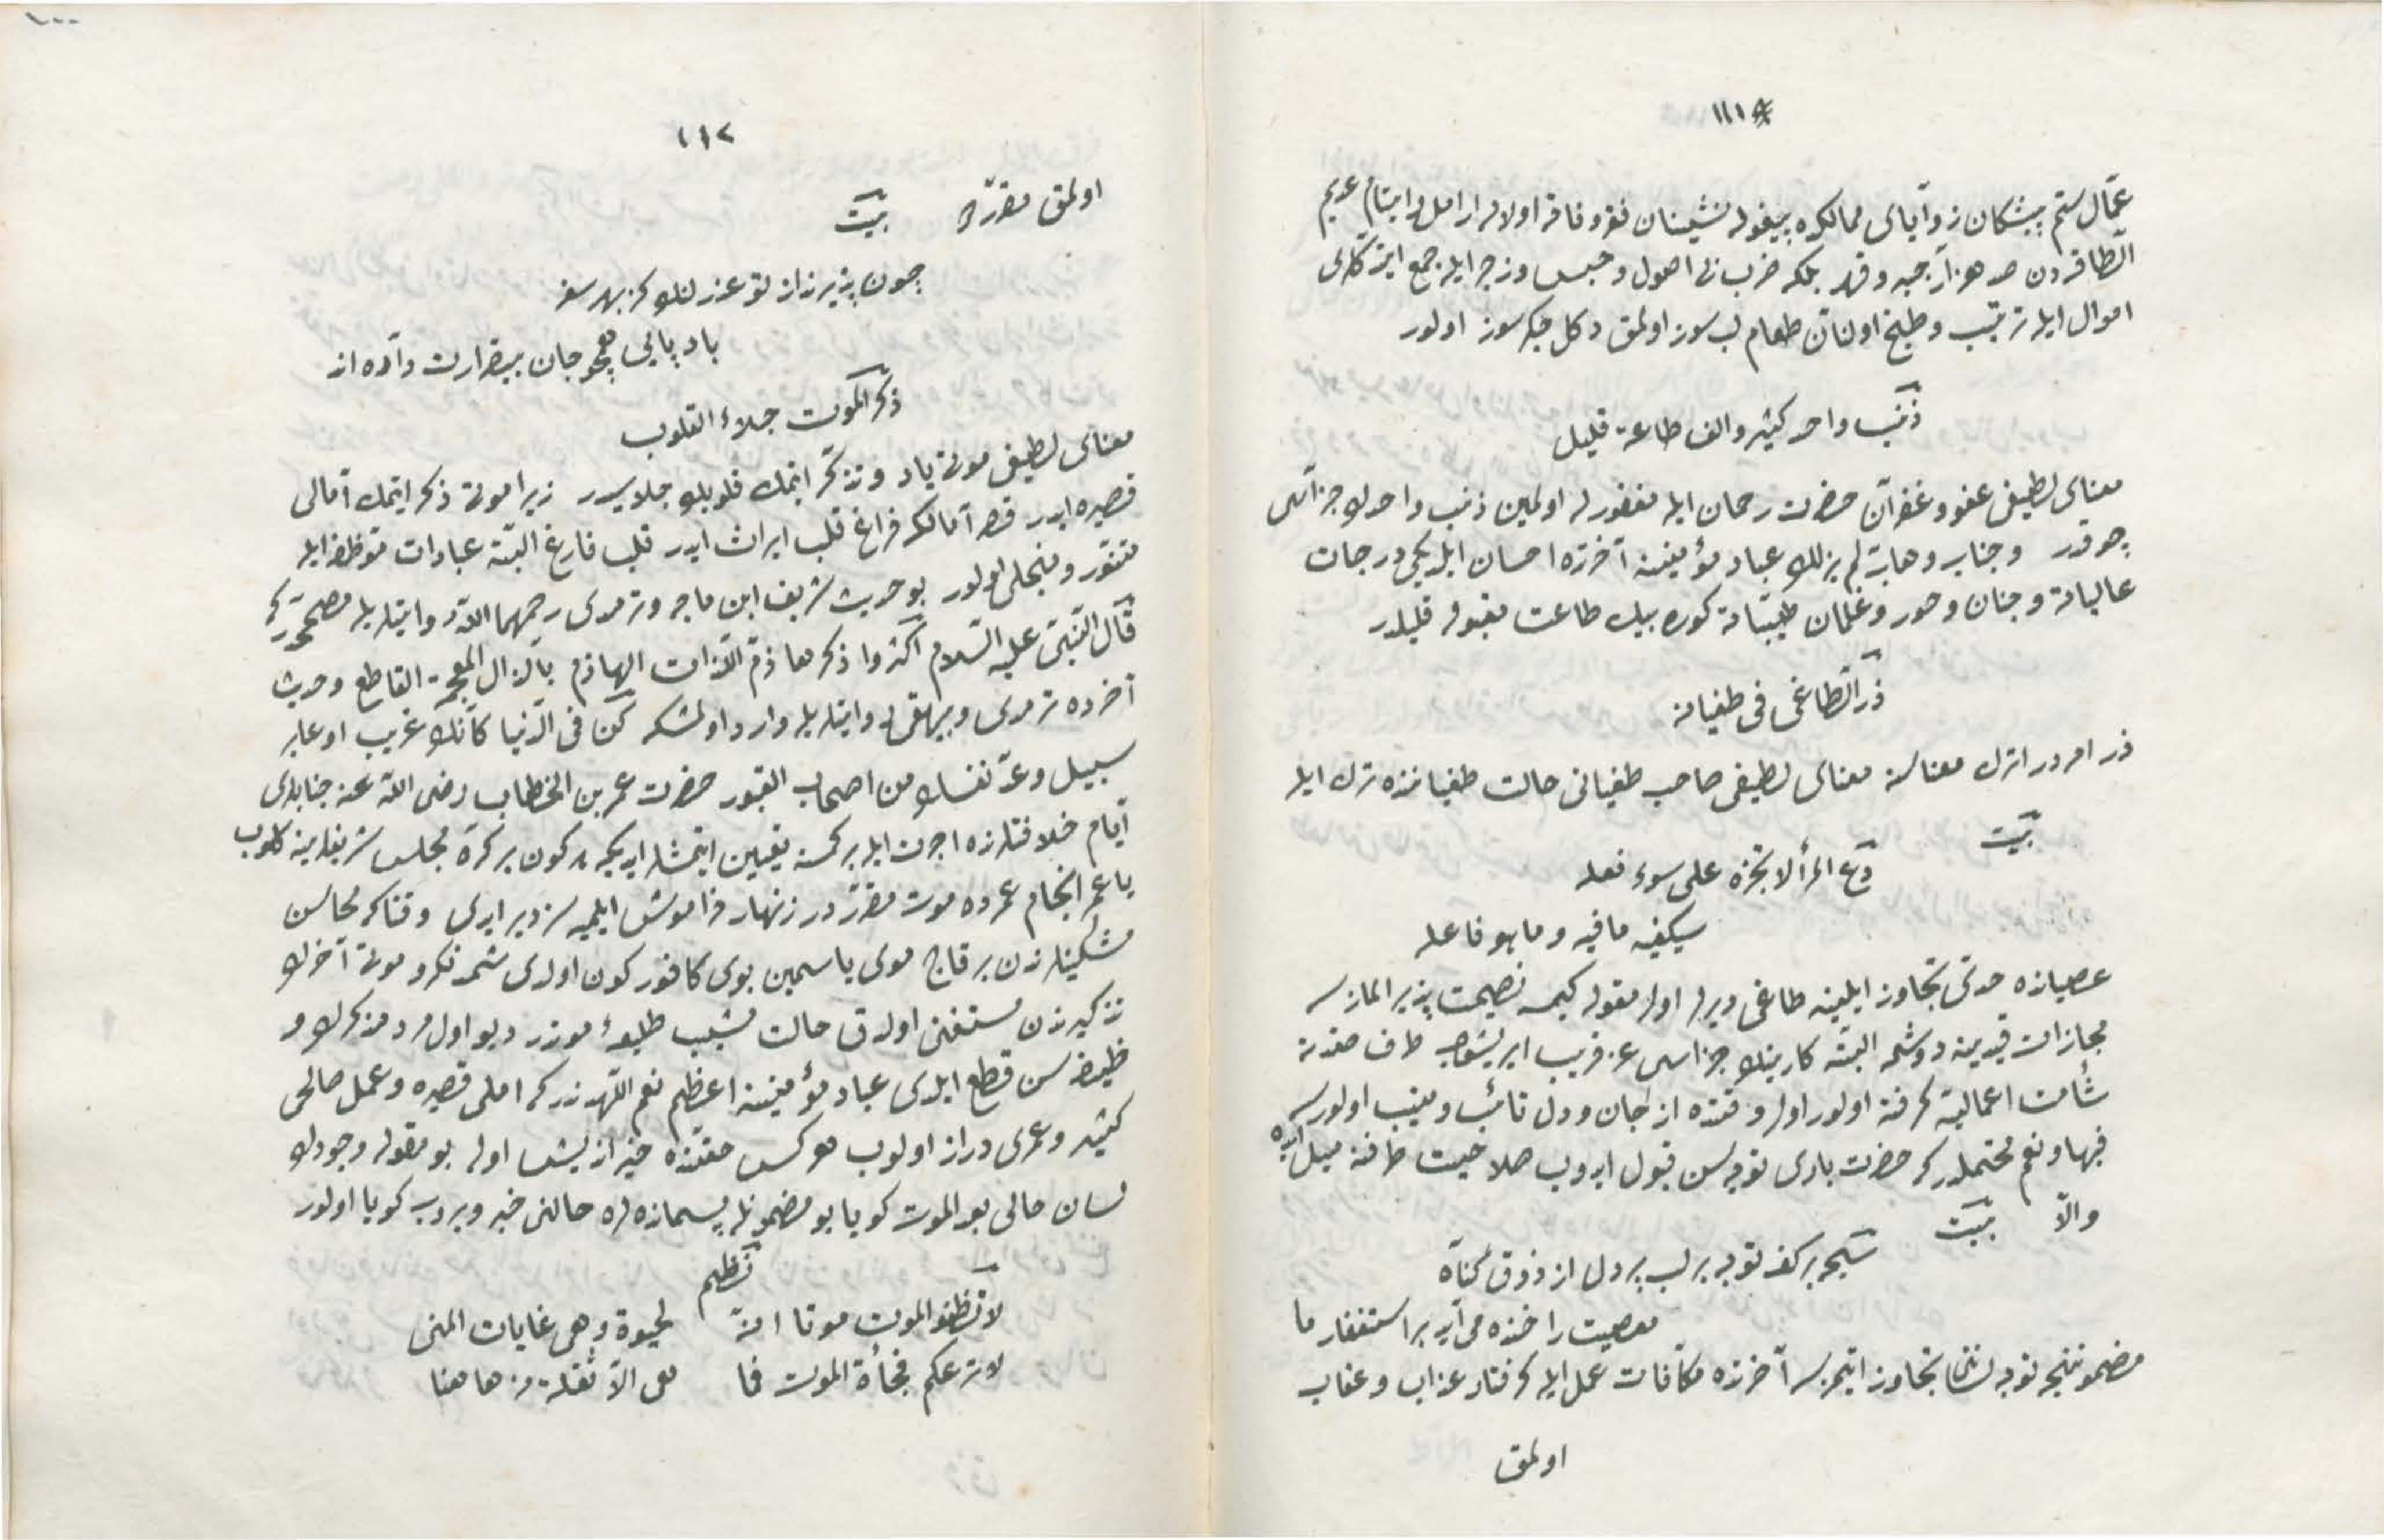 ١١١
عمّال ستم پیشکان زوایای ممالکده بیغوله نشینان فقر و فاقه اولان ارامل و ایتام عدیم
الطاقه دن صد هزار جبر و قهر بلکه ضرب نا اصول و حبس و زجر ایله جمع ایتدکلری
اموال ایله ترتیب و طبخ اولنان طعام لب سوز اولمق دکل جکر سوز اولور
ذنب واحد کثیر والف طاعة قلیل
معنای لطیفی عفو و غفران حضرت رحمان ایله مغفور له اولمین ذنب واحدک جزاسی
چوقدر و جناب وهاب لم یزلک عباد مؤمنینه آخرتده احسان ایلدیکی درجات
عالیاته و جنان و حور و غلمان طیباته کوره بیک طاعت مقبوله قلیلدر
ذر الطاغی فی طغیانه
ذر امردر اترک معناسنه معنای لطیفی صاحب طغیانی حالت طغیاننده ترک ایله
بیت
دع المرأ لا تجزه علی سوء فعله
سیکفیه ما فیه و ما هو فاعله
عصیانده حدنی تجاوز ایلینه طاغی دیرلر اول مقوله کیمسه نصیحت پذیر المازسه
مجازات قیدینه دوشمه البته کارینک جزاسی عن قریب ایریشوب طرف
شأمت اعمالیله کرفته اولور اول وقتده از جان و دل تائب و منیب اولورسه
فبها و نعم محتملدرکه حضرت باری توبه سن قبول ایدوب صلاحیت طرفنه میل ایده
والّا بیت
سبحه بر کف توبه بر لب پر دل از ذوق کناه
معصیت را خنده می آید بر استغفار ما
مضموننجه توبه لسانی تجاوز ایتمزسه آخرتده مکافات عمل ایله کرفتار عذاب و عقاب
اولمق
١١٢
اولمق مقرردر بیت
چون پذیرند از تو عذر لنک کز بهر سفر
باد پایی همچو جان بیقرارت داده اند
ذکر الموت جلاء القلوب
معنای لطیفی موتی یاد و تذکر ایتمک قلوبک جلاسیدر زیرا موتی ذکر ایتمک آمالی
قصیره ایدر قصر آمالکه فراغ قلب ایراث ایدر قلب فارغ البته عبادات موظفه ایله
متنور و منجلی اولور بو حدیث شریف ابن ماجه و ترمدی رحمهما الله روایتلریله مصححدرکه
قال النبی علیه السلام اکثروا ذکر هاذم اللذات الهاذم بالذال المعجمة القاطع و حدیث
آخرده ترمدی و بیهقی روایتلریله وارد اولمشکه کن فی الدنیا کأنک غریب او عابر
سبیل وعدّ نفسک من اصحاب القبور حضرت عمر بن الخطاب رضی الله عنه جنابلری
ایام خلافتلرنده اجرت ایله بر کمسه تعیین ایتمشلر ایدیکه هر کون بر کرّه مجلس شریفلرینه کلوب
یا عمر انجام عمرده موت مقرردر زنهار فراموش ایلمیه سز دیر ایدی وقتاکه محاسن
مشکینلرندن بر قاچ موی یاسمین بوی کافور کون اولدی شمدنکرو موتی آخرک
تذکیرندن مستغنی اولدق حالت شیب طلیعهٔ موتدر دیو اول مرد مذکرک و
ظیفه سن قطع ایلدی عباد مؤمنینه اعظم نعم اللهیدندرکه املی قصیره و عمل صالحی
کثیر و عمری دراز اولوب هرکس حقنده خیر اندیش اوله بو مقوله وجودک
لسان حالی بعد الموت کویا بو مضمونله پسماندهلره حالنی خبر ویروب کویا اولور
نظم
لا تظنوا الموت موتا انه لحیوة وهی غایات المنی
لا ترعکم فجأة الموت فما هی الّا نقلة من هاهنا